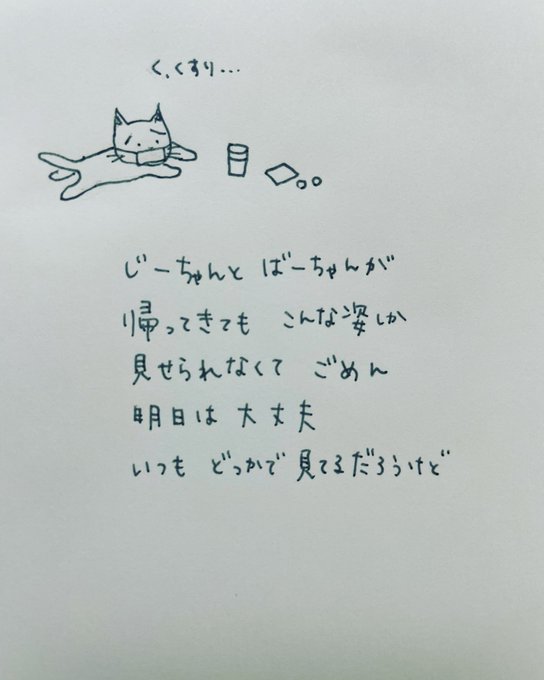 く、くすり...
じーちゃんと ばーちゃんが
帰ってきても こんな姿しか
見せられなくて ごめん
明日は 大丈夫
いつも どっかで 見てるだろうけど